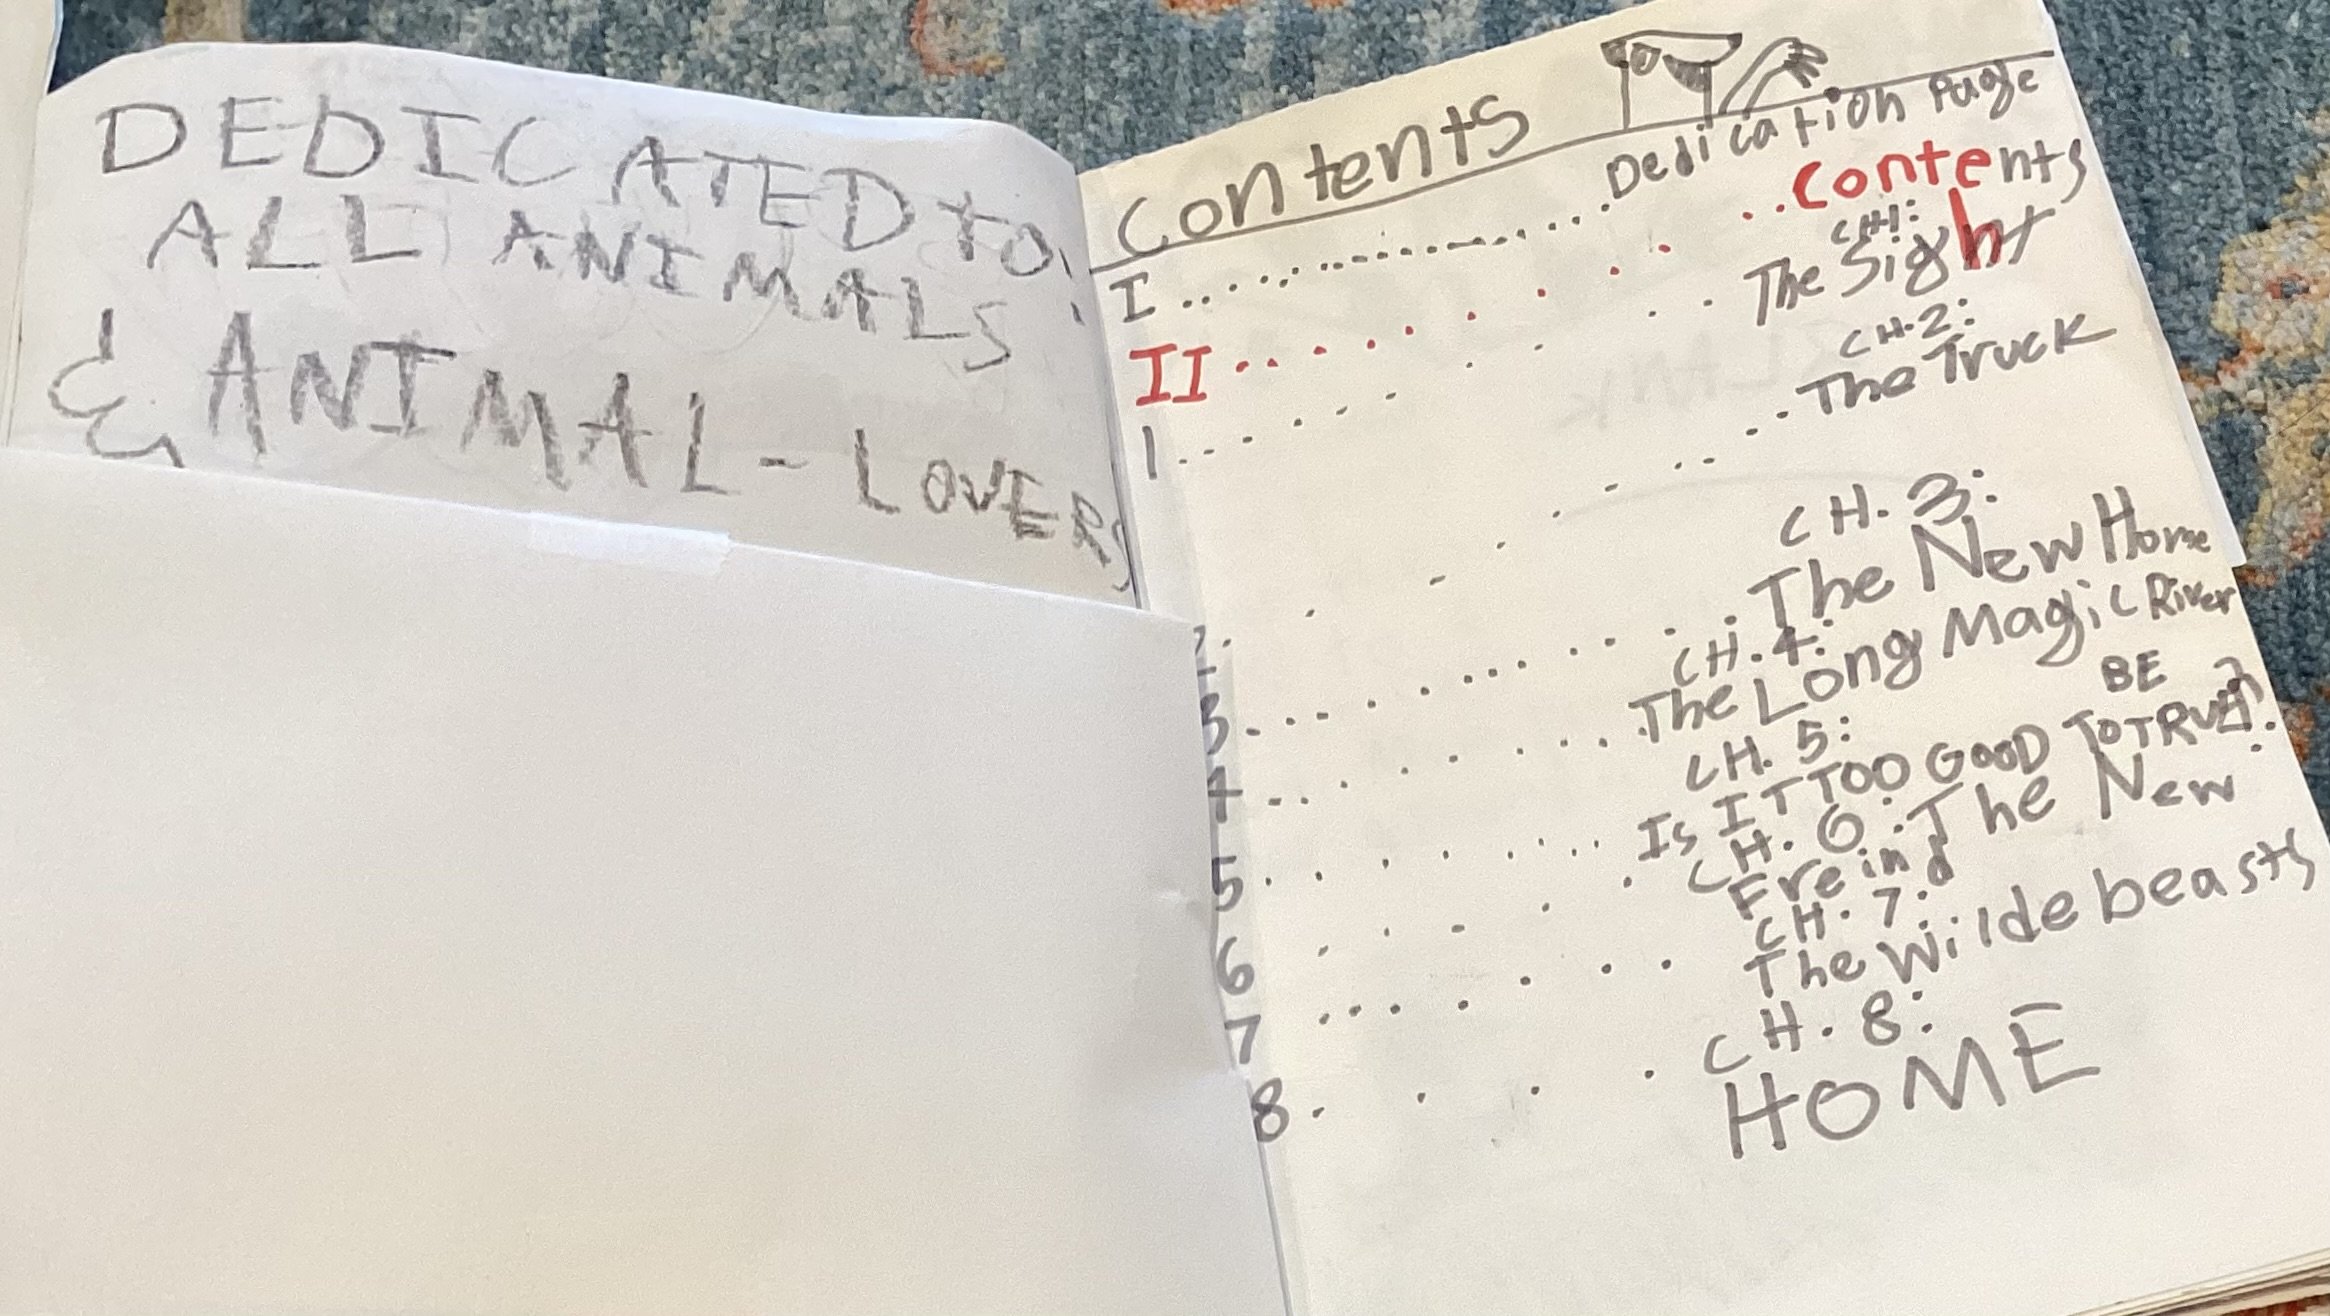 DEDICATED to:
ALL ANIMALS
& ANIMAL-LOVERS
Contents
I................Dedication Page
II...........Contents
1...........CH1:
The Sight
2...........CH.2:
The Truck
3...........CH. 3:
The New Home
4...........CH. 4:
The Long Magic River
5...........CH. 5:
Is IT TOO GOOD TO BE TRUE?
6...........CH. 6: The New
Freind
7...........CH. 7:
The Wildebeasts
8...........CH. 8:
HOME